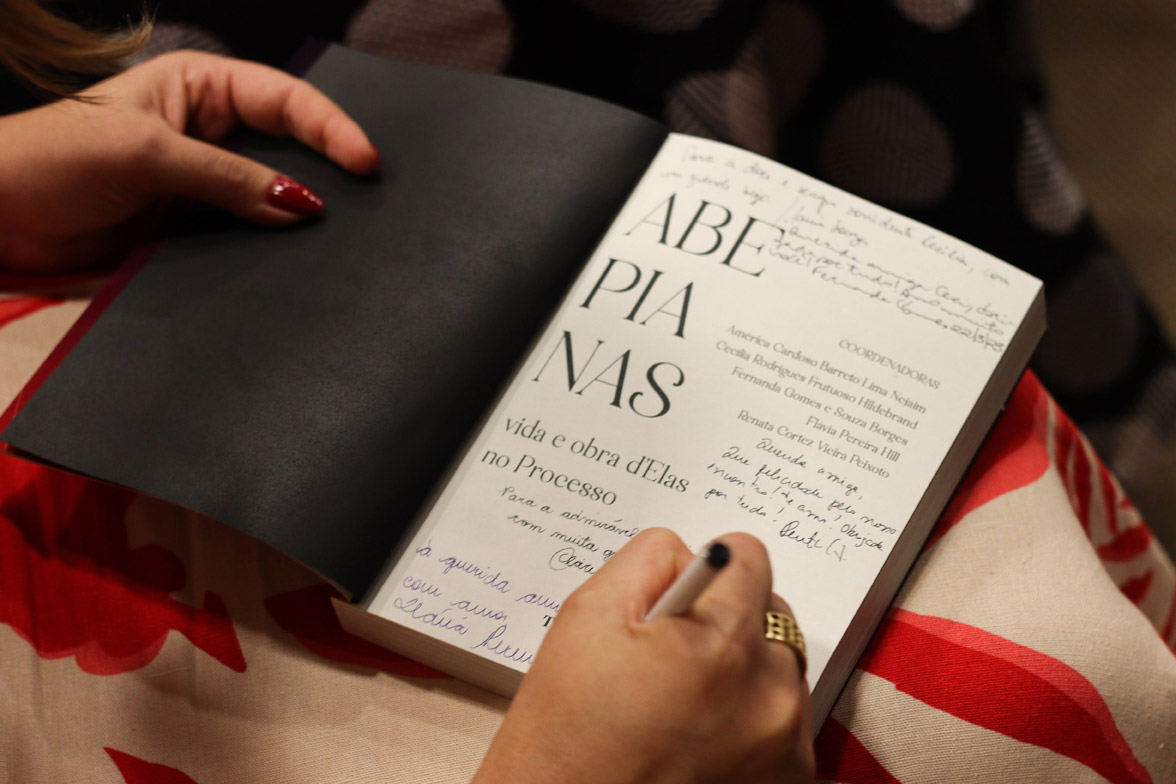 Para a doce e sempre sorridente Cecília, com
um grande beijo
Querida amiga Ceci,
por tudo! Amo muito
você! Fernanda
Gomes 22/3/23
ABE
PIA
NAS
vida e obra d'Elas
no Processo
COORDENADORAS
America Cardoso Barreto Lima Nejaim
Cecília Rodrigues Frutuoso Hildebrand
Fernanda Gomes e Souza Borges
Flávia Pereira Hill
Renata Cortez Vieira Peixoto
Querida amiga,
Que felicidade pelo nosso
encontro! Te amo! Obrigada
por tudo!
Para a admirável
com muita
à querida
com amor
T